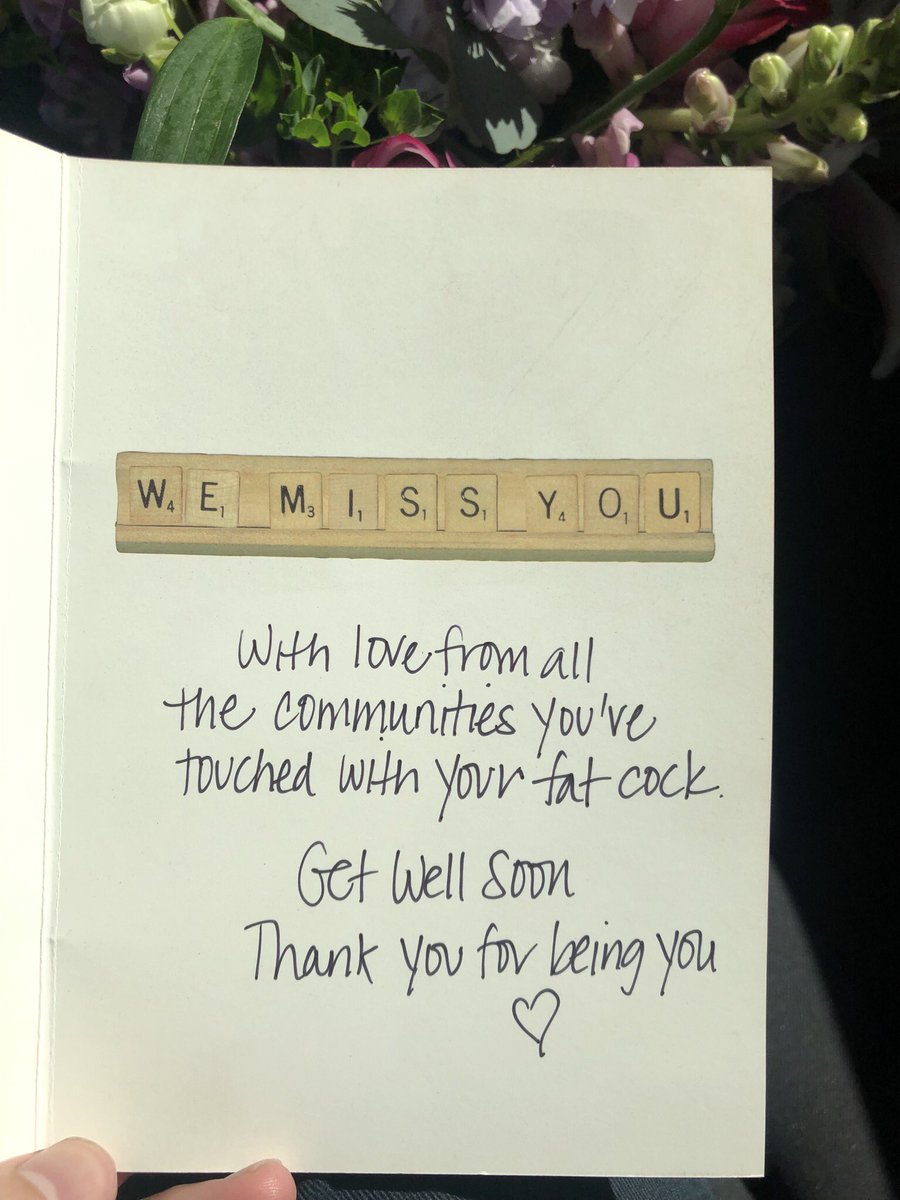 W4 E1 M3 I1 S1 S1 Y4 O1 U1
With love from all
the communities you've
touched with your fat cock.
Get Well Soon
Thank you for being you
♡